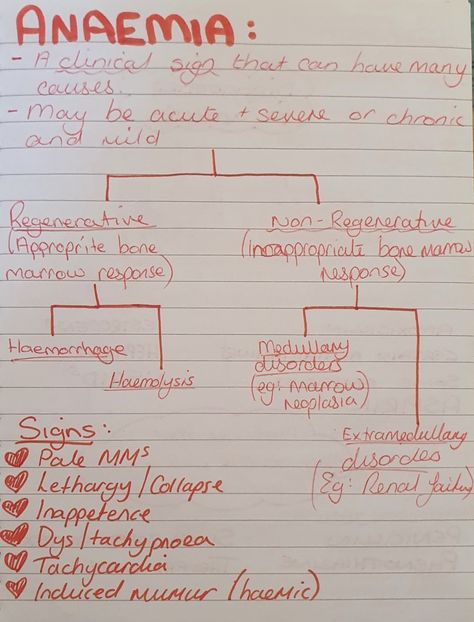 ANAEMIA:
- A clinical sign that can have many
causes.
- May be acute + severe or chronic
and mild
Regenerative
(Approprite bone
marrow response)
Non-Regenerative
(Inappropriate bone marrow
response)
Haemorrhage
Haemolysis
Medullary
disorders
(eg: Marrow
neoplasia)
Extramedullary
disorders
(Eg: Renal failure
Signs:
Pale MMs
Lethargy/Collapse
Inappetence
Dys/tachypnoea
Tachycardia
Induced mumur (haemic)